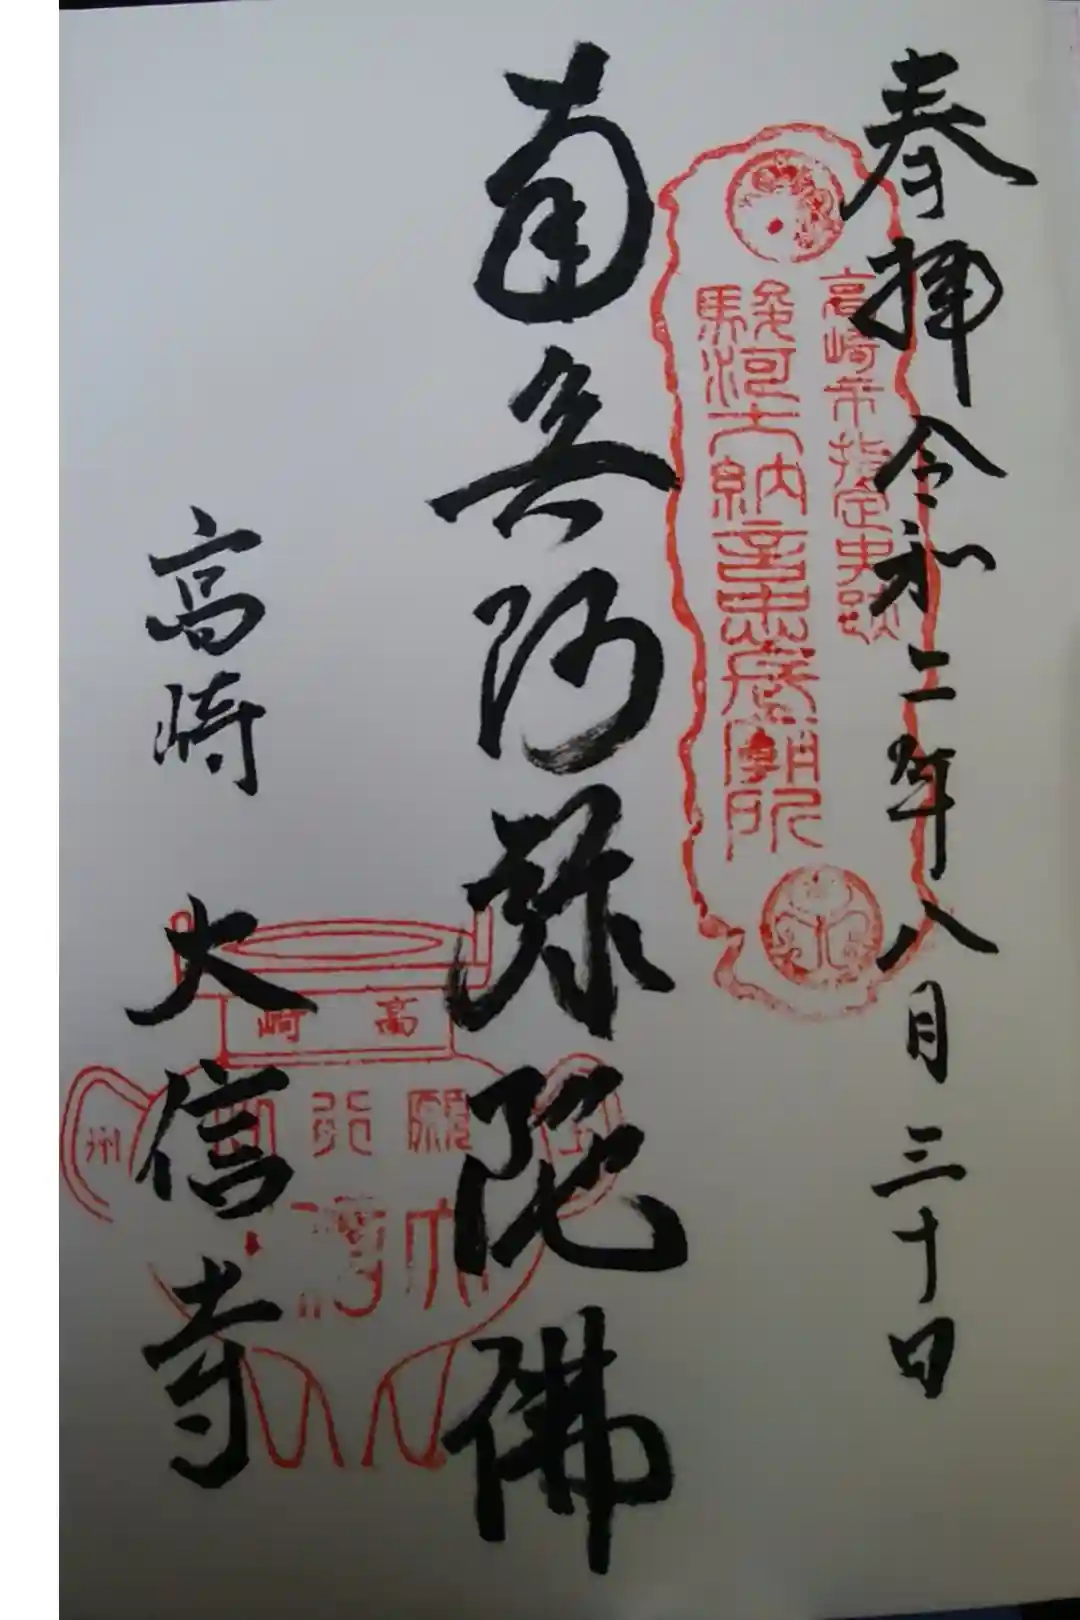 奉拝 令和二年八月三十日
高崎市指定史跡
駿河大納言忠長廟所
南無阿弥陀佛
高崎 大信寺
高崎
願行
州